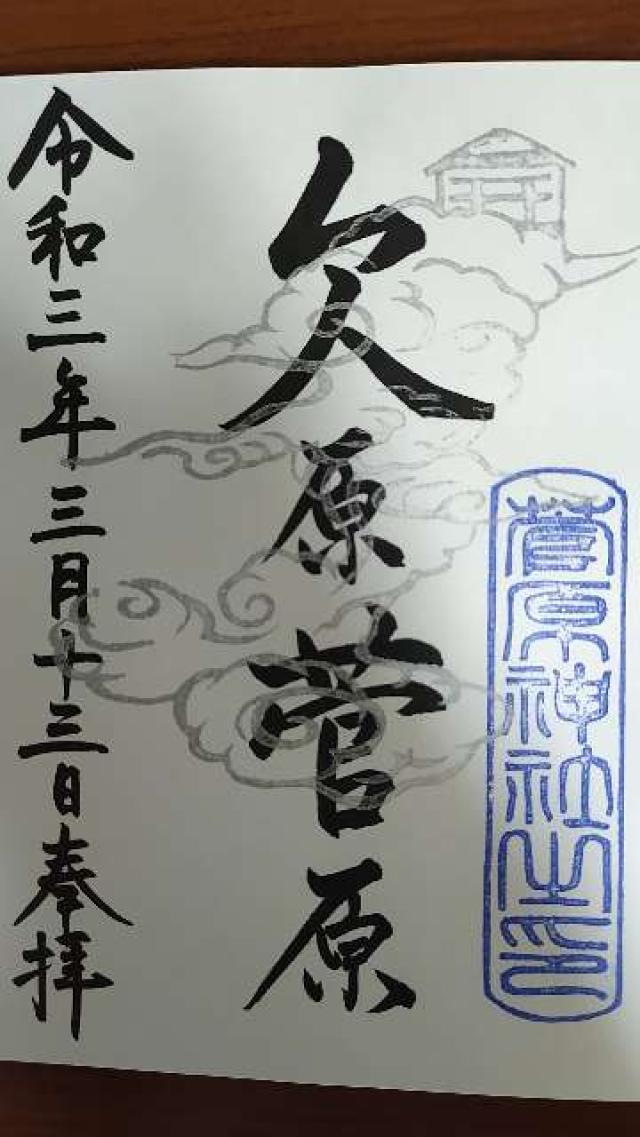 菅原神社之印
久原菅原
令和三年三月十三日奉拝